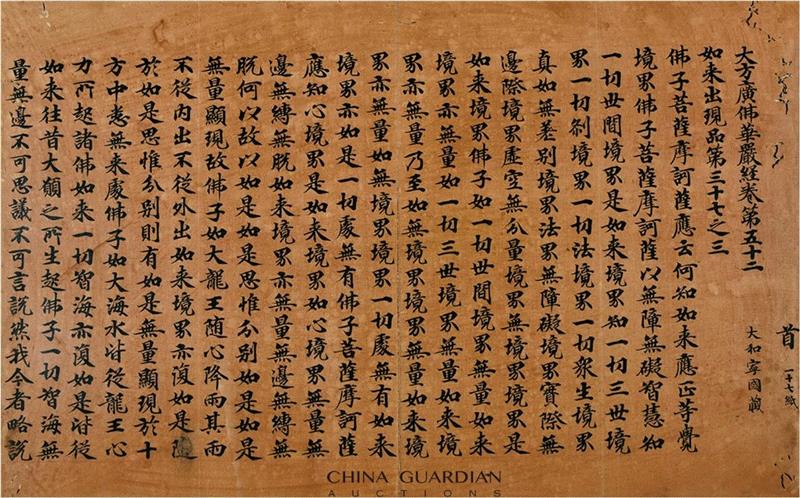 首
一十七紙
大和寧國藏
大方廣佛華嚴経卷第五十二
如来出現品第三十七之三
佛子菩薩摩訶薩應云何知如来應正等覺
境界佛子菩薩摩訶薩以無障無礙智慧知
一切世間境界是如来境界知一切三世境
界一切剎境界一切法境界一切衆生境界
真如無差別境界法界無障礙境界實際無
邊際境界虛空無分量境界無境界境界是
如来境界佛子如一切世間境界無量如来
境界亦無量如一切三世境界無量如来境
界亦無量乃至如無境界境界無量如来境
界亦無量如無境界境界一切處無有如来
境界亦如是一切處無有佛子菩薩摩訶薩
應知心境界是如来境界如心境界無量無
邊無縛無脫如来境界亦無量無邊無縛無
脫何以故以如是如是思惟分別如是如是
無量顯現故佛子如大龍王随心降雨其雨
不從内出不從外出如来境界亦復如是隨
於如是思惟分別則有如是無量顯現於十
方中悉無来處佛子如大海水皆從龍王心
力所起諸佛如来一切智海亦復如是皆從
如来往昔大願之所生起佛子一切智海無
量無邊不可思議不可言說然我今者略說
CHINA GUARDIAN
AUCTIONS